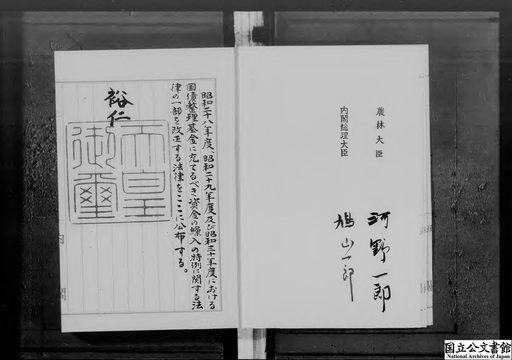 農林大臣
河野一郎
内閣総理大臣
鳩山一郎
昭和二十八年度、昭和二十九年度及び昭和三十年度における
国債整理基金に充てるべき資金の繰入の特例に関する法
律の一部を改正する法律をここに公布する。
裕仁
天皇
御璽
国立公文書館
National Archives of Japan